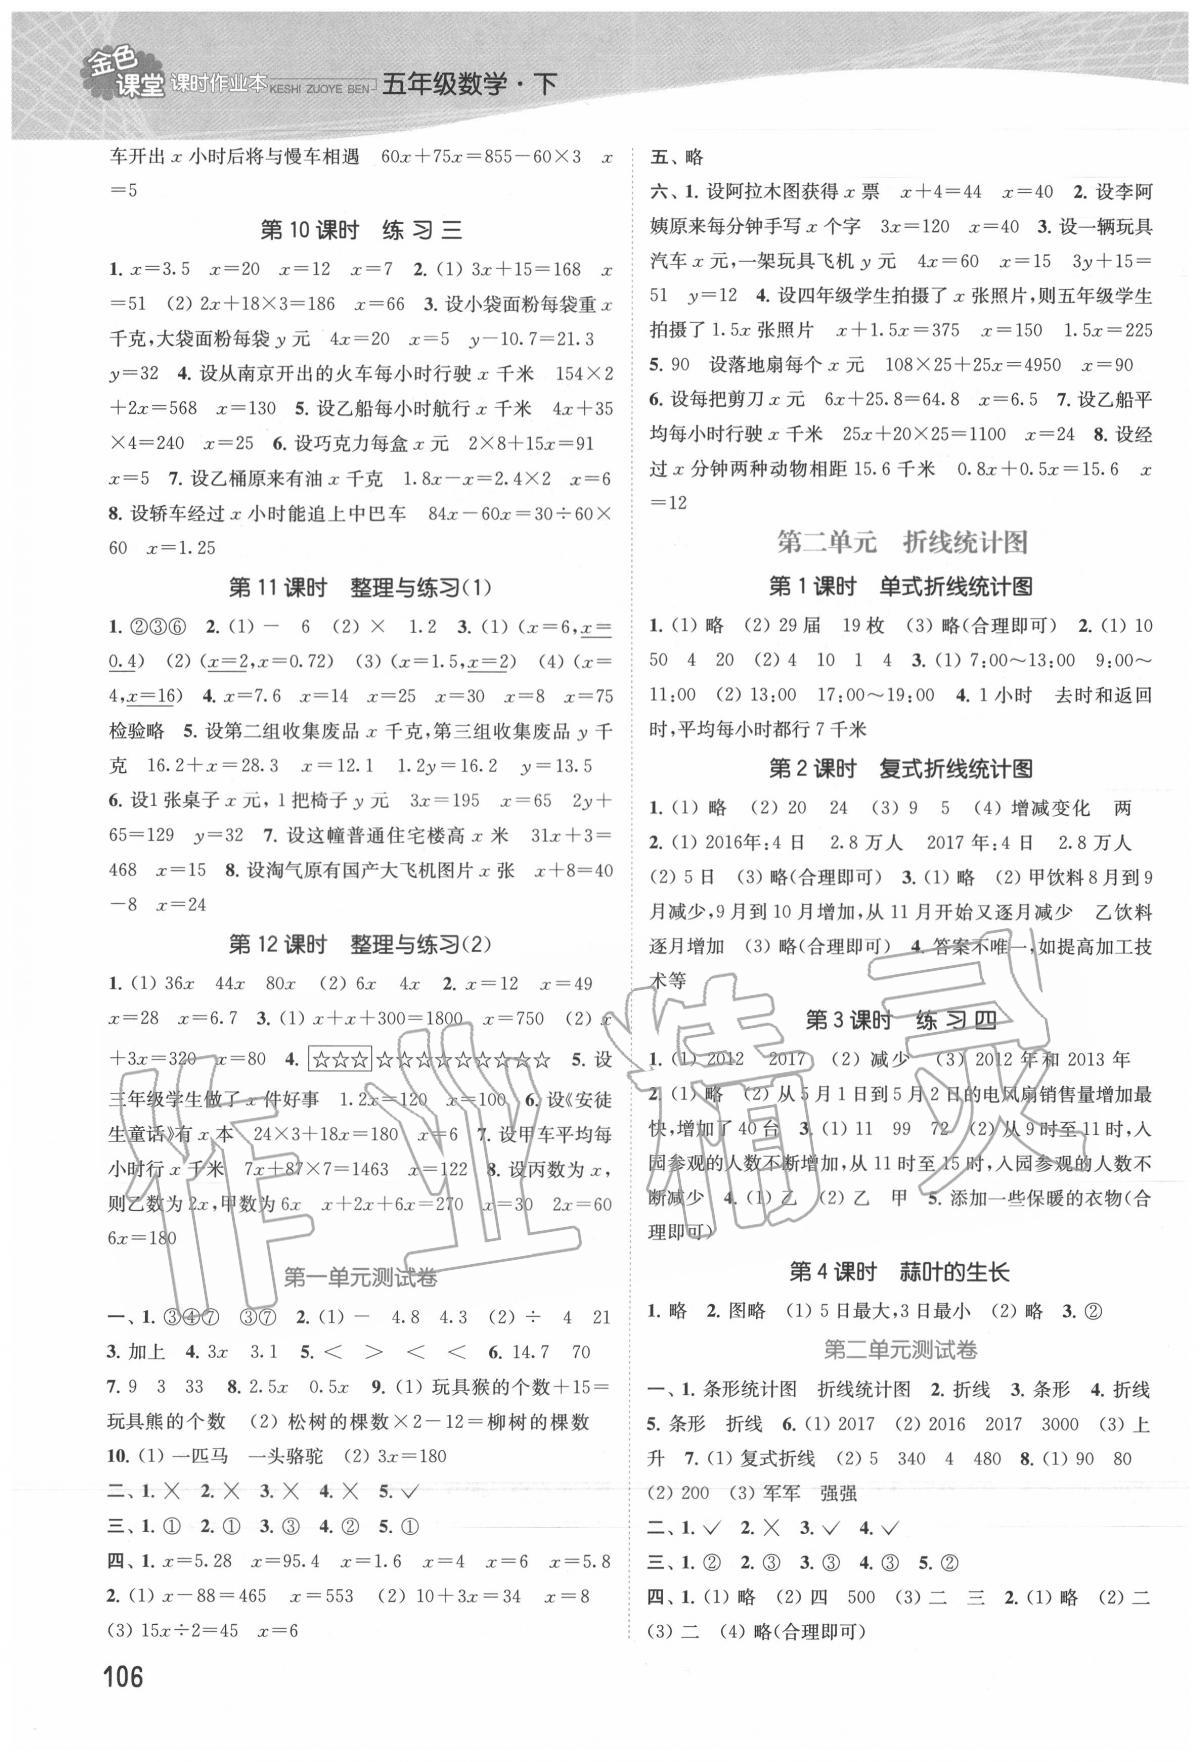 金色课堂 课时作业本 KESHI ZUOYE BEN 五年级数学·下
车开出 x 小时后将与慢车相遇 60x+75x=855-60×3 x
=5
第 10 课时 练 习 三
1. x=3.5 x=20 x=12 x=7 2. (1) 3x+15=168 x
=51 (2) 2x+18×3=186 x=66 3. 设小袋面粉每袋重 x
千克,大袋面粉每袋 y 元 4x=20 x=5 y-10.7=21.3
y=32 4. 设从南京开出的火车每小时行驶 x 千米 154×2
+2x=568 x=130 5. 设乙船每小时航行 x 千米 4x+35
×4=240 x=25 6. 设巧克力每盒 x 元 2×8+15x=91
x=5 7. 设乙桶原来有油 x 千克 1.8x-x=2.4×2 x=6
8. 设轿车经过 x 小时能追上中巴车 84x-60x=30÷60×
60 x=1.25
第 11 课时 整理与练习(1)
1. ②③⑥ 2. (1) - 6 (2) × 1.2 3. (1) (x=6,x=
0.4) (2) (x=2,x=0.72) (3) (x=1.5,x=2) (4) (x=
4,x=16) 4. x=7.6 x=14 x=25 x=30 x=8 x=75
检验略 5. 设第二组收集废品 x 千克,第三组收集废品 y 千
克 16.2+x=28.3 x=12.1 1.2y=16.2 y=13.5
6. 设1 张桌子 x 元,1 把椅子 y 元 3x=195 x=65 2y+
65=129 y=32 7. 设这幢普通住宅楼高 x 米 31x+3=
468 x=15 8. 设淘气原有国产大飞机图片 x 张 x+8=40
-8 x=24
第 12 课时 整理与练习(2)
1. (1) 36x 44x 80x (2) 6x 4x 2. x=12 x=49
x=28 x=6.7 3. (1) x+x+300=1800 x=750 (2) x
+3x=320 x=80 4. ☆☆☆☆☆☆☆☆☆☆☆☆ 5. 设
三年级学生做了 x 件好事 1.2x=120 x=100 6. 设《安徒
生童话》有 x 本 24×3+18x=180 x=6 7. 设甲车平均每
小时行 x 千米 7x+87×7=1463 x=122 8. 设丙数为 x,
则乙数为 2x,甲数为 6x x+2x+6x=270 x=30 2x=60
6x=180
第一单元测试卷
一、1. ③④⑦ ③⑦ 2. (1) - 4.8 4.3 (2) ÷ 4 21
3. 加上 4. 3x 3.1 5. < > < < 6. 14.7 70
7. 9 3 33 8. 2.5x 0.5x 9. (1) 玩具猴的个数+15=
玩具熊的个数 (2) 松树的棵数×2-12=柳树的棵数
10. (1) 一匹马 一头骆驼 (2) 3x=180
二、1. × 2. × 3. × 4. × 5. ✓
三、1. ① 2. ① 3. ③ 4. ② 5. ①
四、1. x=5.28 x=95.4 x=1.6 x=4 x=6 x=5.8
2. (1) x-88=465 x=553 (2) 10+3x=34 x=8
(3) 15x÷2=45 x=6
106
五、略
六、1. 设阿拉木图获得 x 票 x+4=44 x=40 2. 设李阿
姨原来每分钟手写 x 个字 3x=120 x=40 3. 设一辆玩具
汽车 x 元,一架玩具飞机 y 元 4x=60 x=15 3y+15=
51 y=12 4. 设四年级学生拍摄了 x 张照片,则五年级学生
拍摄了 1.5x 张照片 x+1.5x=375 x=150 1.5x=225
5. 90 设落地扇每个 x 元 108×25+25x=4950 x=90
6. 设每把剪刀 x 元 6x+25.8=64.8 x=6.5 7. 设乙船平
均每小时行驶 x 千米 25x+20×25=1100 x=24 8. 设经
过 x 分钟两种动物相距 15.6 千米 0.8x+0.5x=15.6 x
=12
第二单元 折线统计图
第 1 课时 单式折线统计图
1. (1) 略 (2) 29 届 19 枚 (3) 略(合理即可) 2. (1) 10
50 4 20 (2) 4 10 1 4 3. (1) 7:00～13:00 9:00～
11:00 (2) 13:00 17:00～19:00 4. 1 小时 去时和返回
时,平均每小时都行 7 千米
第 2 课时 复式折线统计图
1. (1) 略 (2) 20 24 (3) 9 5 (4) 增减变化 两
2. (1) 2016年:4 日 2.8 万人 2017 年:4 日 2.8 万人
(2) 5 日 (3) 略(合理即可) 3. (1) 略 (2) 甲饮料 8 月到 9
月减少,9 月到 10 月增加,从 11 月开始又逐月减少 乙饮料
逐月增加 (3) 略(合理即可) 4. 答案不唯一,如提高加工技
术等
第 3 课时 练 习 四
1. (1) 2012 2017 (2) 减少 (3) 2012 年和 2013 年
2. (1) 略 (2) 从 5 月 1 日到 5 月 2 日的电风扇销售量增加最
快,增加了 40 台 3. (1) 11 99 72 (2) 从 9 时至 11 时,入
园参观的人数不断增加,从 11 时至 15 时,入园参观的人数不
断减少 4. (1) 乙 (2) 乙 甲 5. 添加一些保暖的衣物(合
理即可)
第 4 课时 蒜叶的生长
1. 略 2. 图略 (1) 5 日最大,3 日最小 (2) 略 3. ②
第二单元测试卷
一、1. 条形统计图 折线统计图 2. 折线 3. 条形 4. 折线
5. 条形 折线 6. (1) 2017 (2) 2016 2017 3000 (3) 上
升 7. (1) 复式折线 (2) 5 340 4 480 8. (1) 90 80
(2) 200 (3) 军军 强强
二、1. ✓ 2. × 3. ✓ 4. ✓
三、1. ② 2. ③ 3. ③ 4. ③ 5. ②
四、1. (1) 略 (2) 四 500 (3) 二 三 2. (1) 略 (2) 二
(3) 二 (4) 略(合理即可)
作业精灵